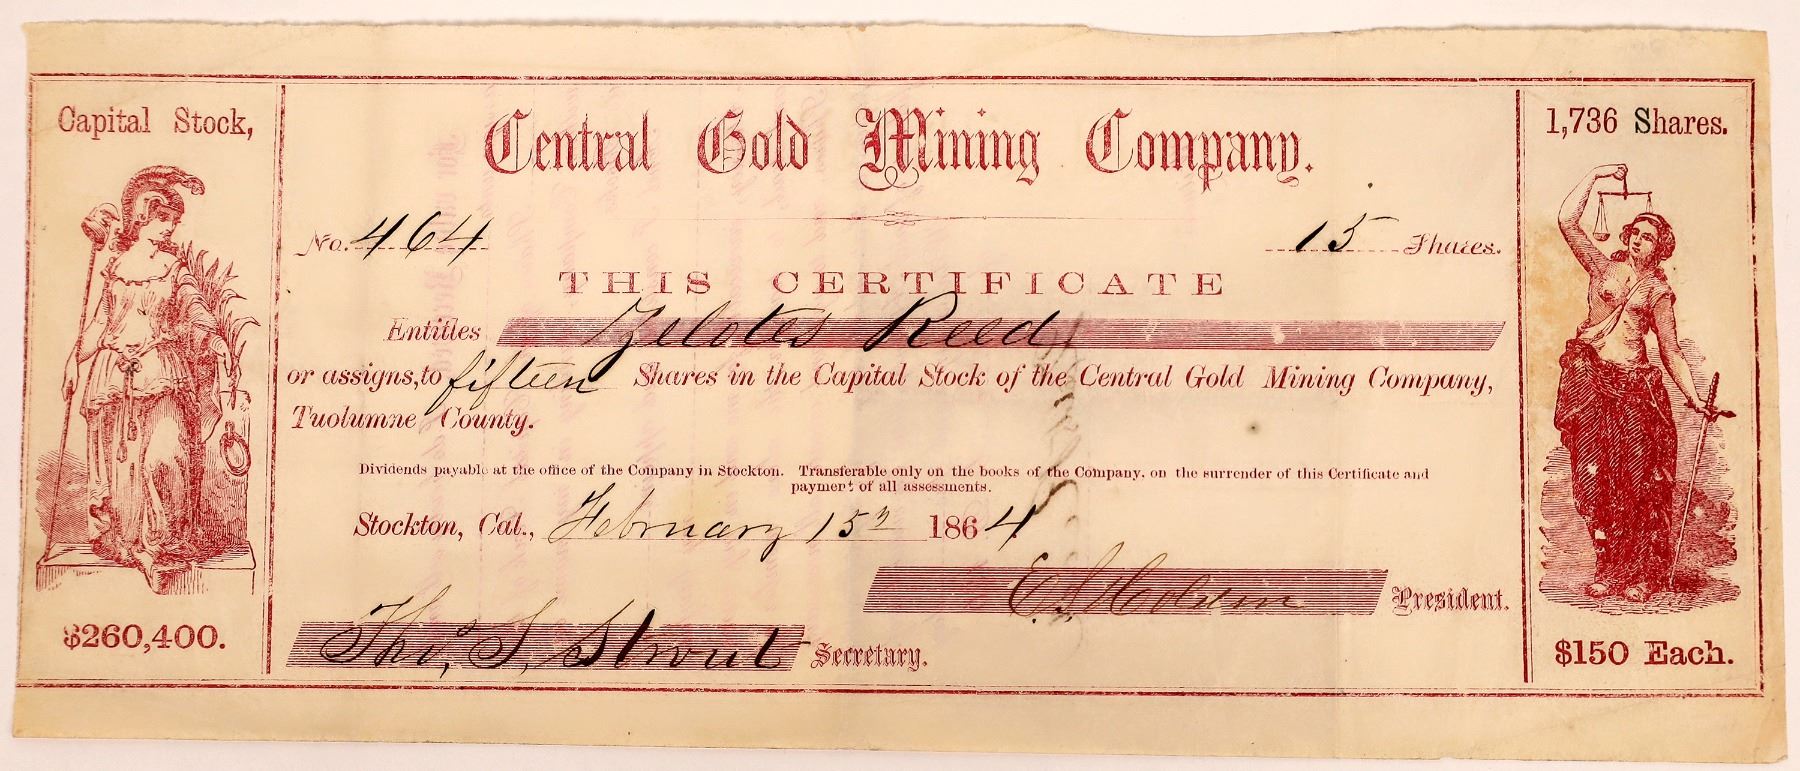 Capital Stock,
$260,400.
Central Gold Mining Company.
No. 464
15 Shares.
THIS CERTIFICATE
Entitles Zelotes Reed
or assigns, to fifteen Shares in the Capital Stock of the Central Gold Mining Company,
Tuolumne County.
Dividends payable at the office of the Company in Stockton. Transferable only on the books of the Company, on the surrender of this Certificate and
payment of all assessments.
Stockton, Cal., February 15th 1864
E. S. Holden President.
Thos. S. Strout Secretary.
1,736 Shares.
$150 Each.